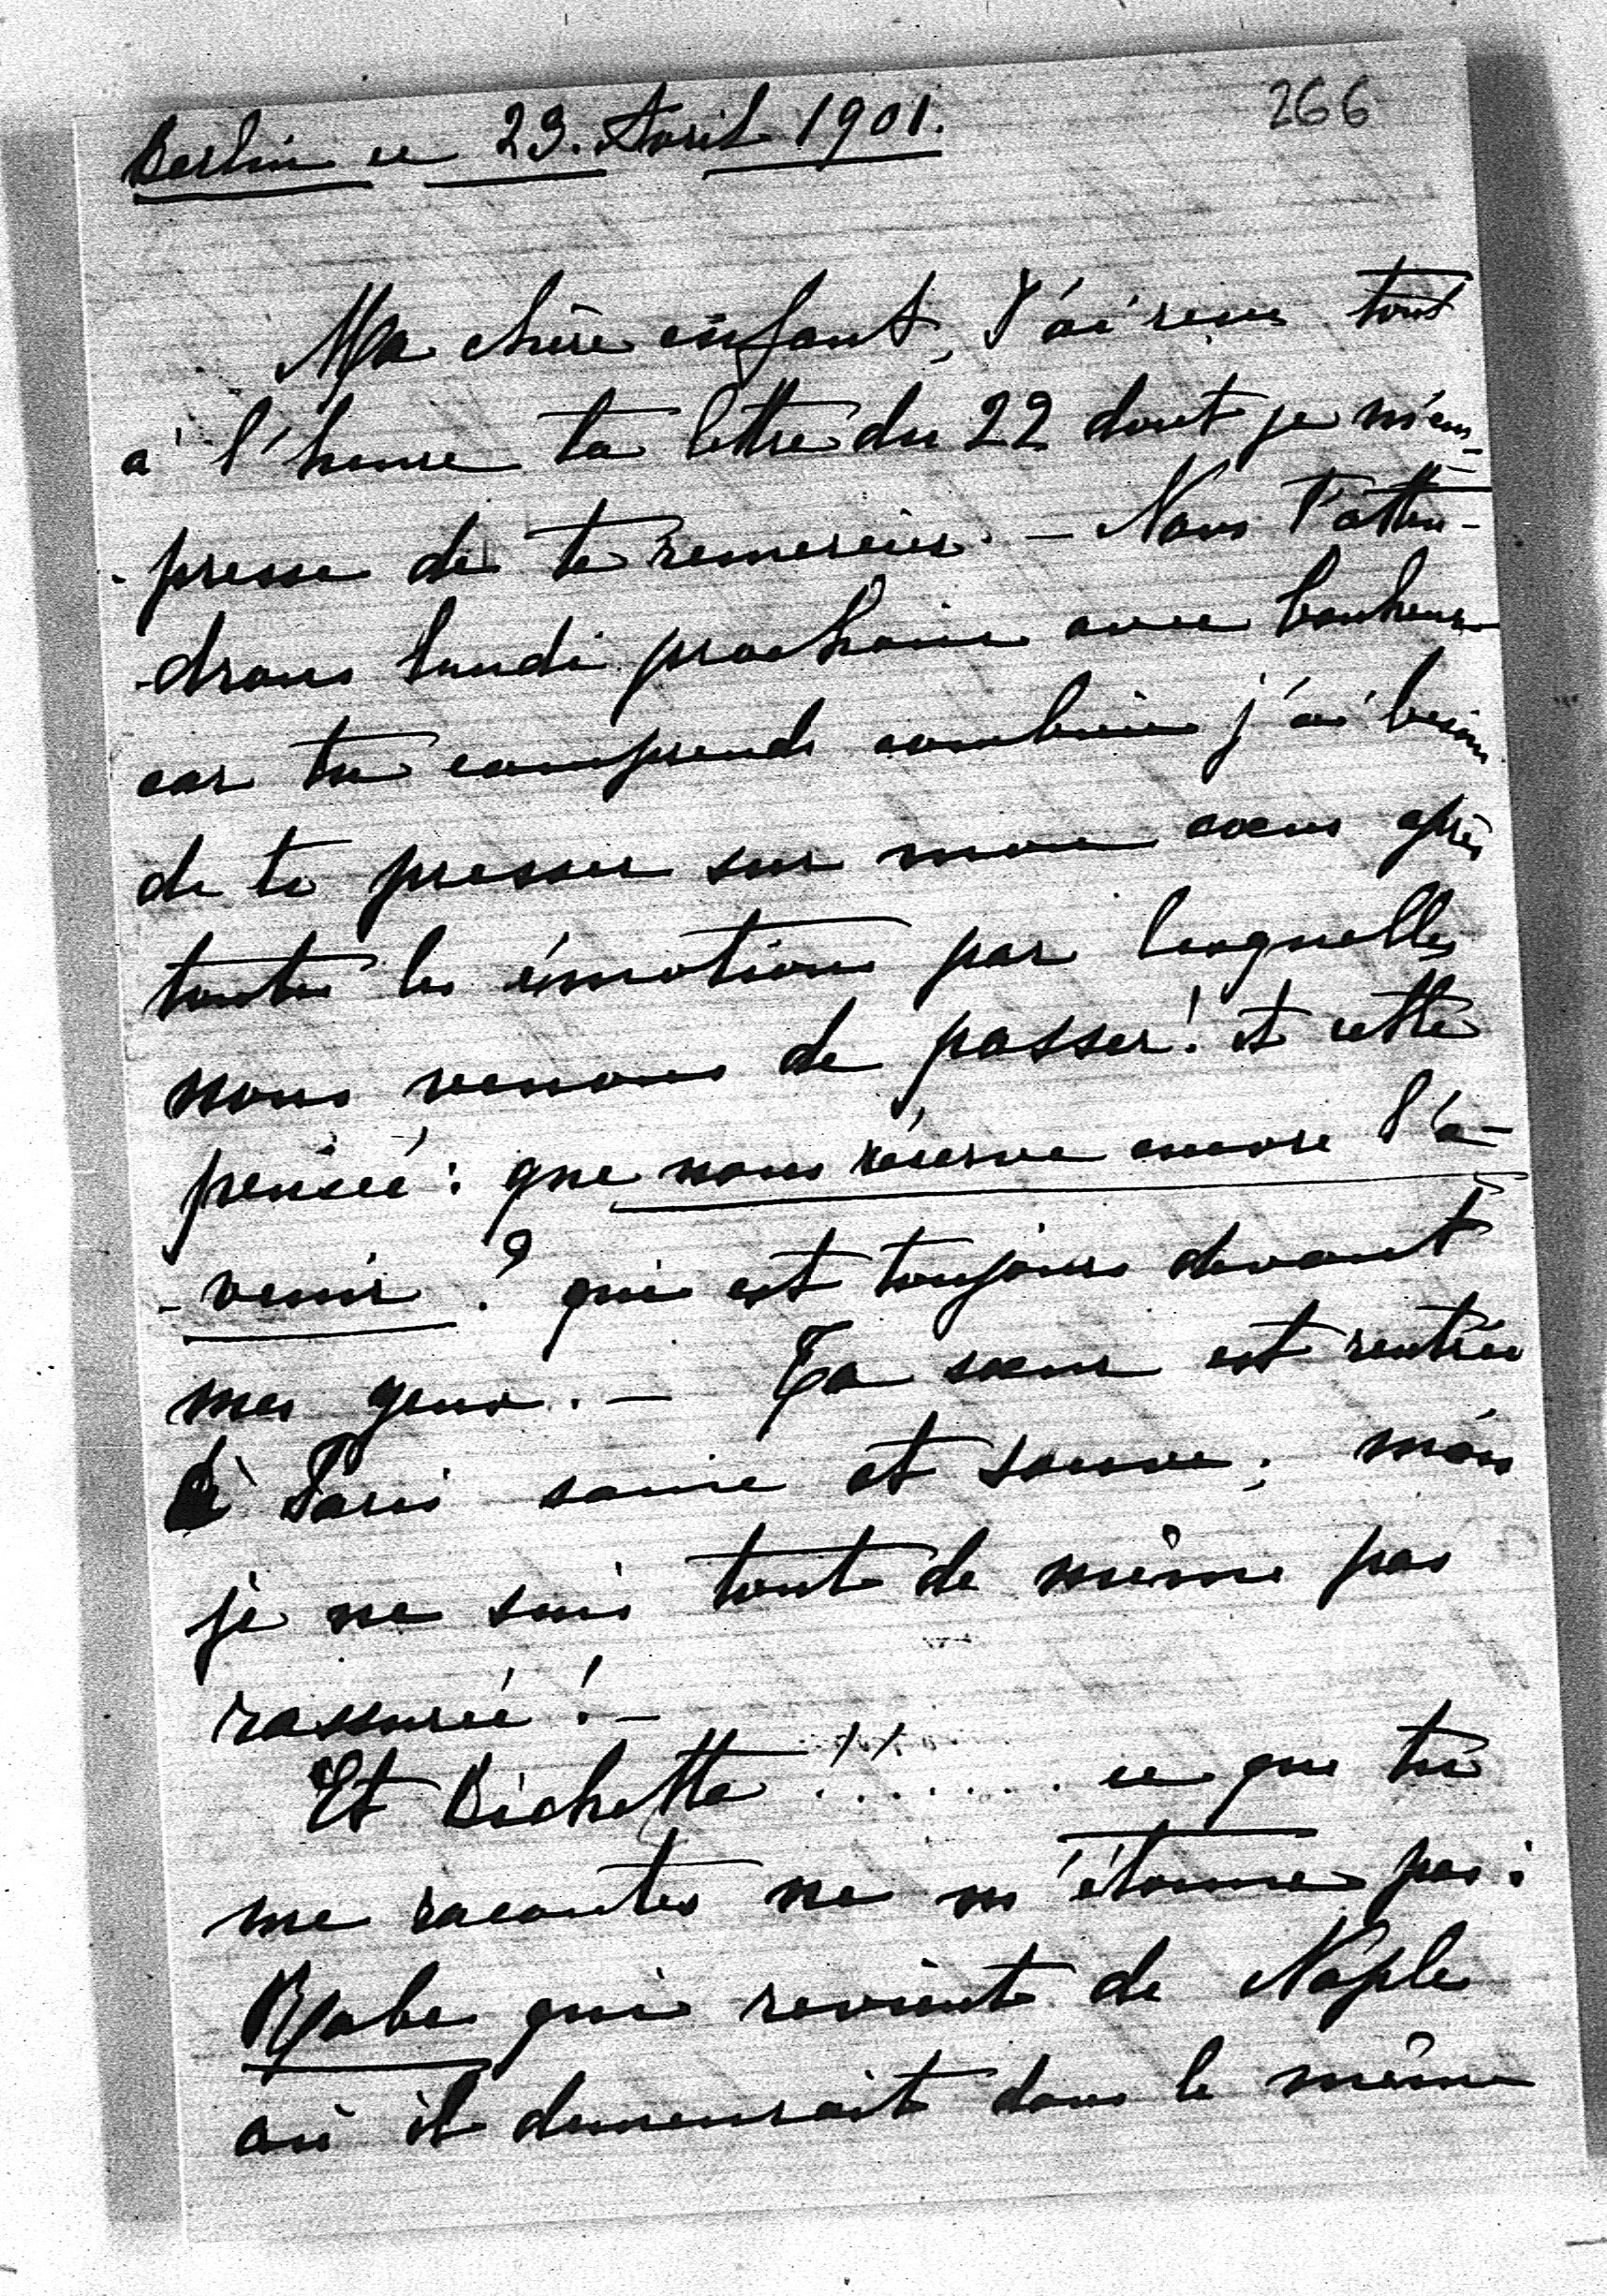 266
Berlin ce 23. Avril 1901.
Ma chère enfant, J'ai reçu tout
à l'heure ta lettre du 22 dont je m'em-
-presse de te remercier. — Nous t'atten-
-drons lundi prochain avec bonheur
car tu comprends combien j'ai besoin
de te presser sur mon cœur après
toutes les émotions par lesquelles
nous venons de passer! et cette
pensée: que nous réserve encore l'a-
-venir? qui est toujours devant
mes yeux. — Ta sœur est rentrée
à Paris saine et sauve; mais
je ne suis tout de même pas
rassurée! —
Et Bichette!!....... ce que tu
me racontes ne m'étonne pas:
qui revient de Naples
où il demeurait dans le même